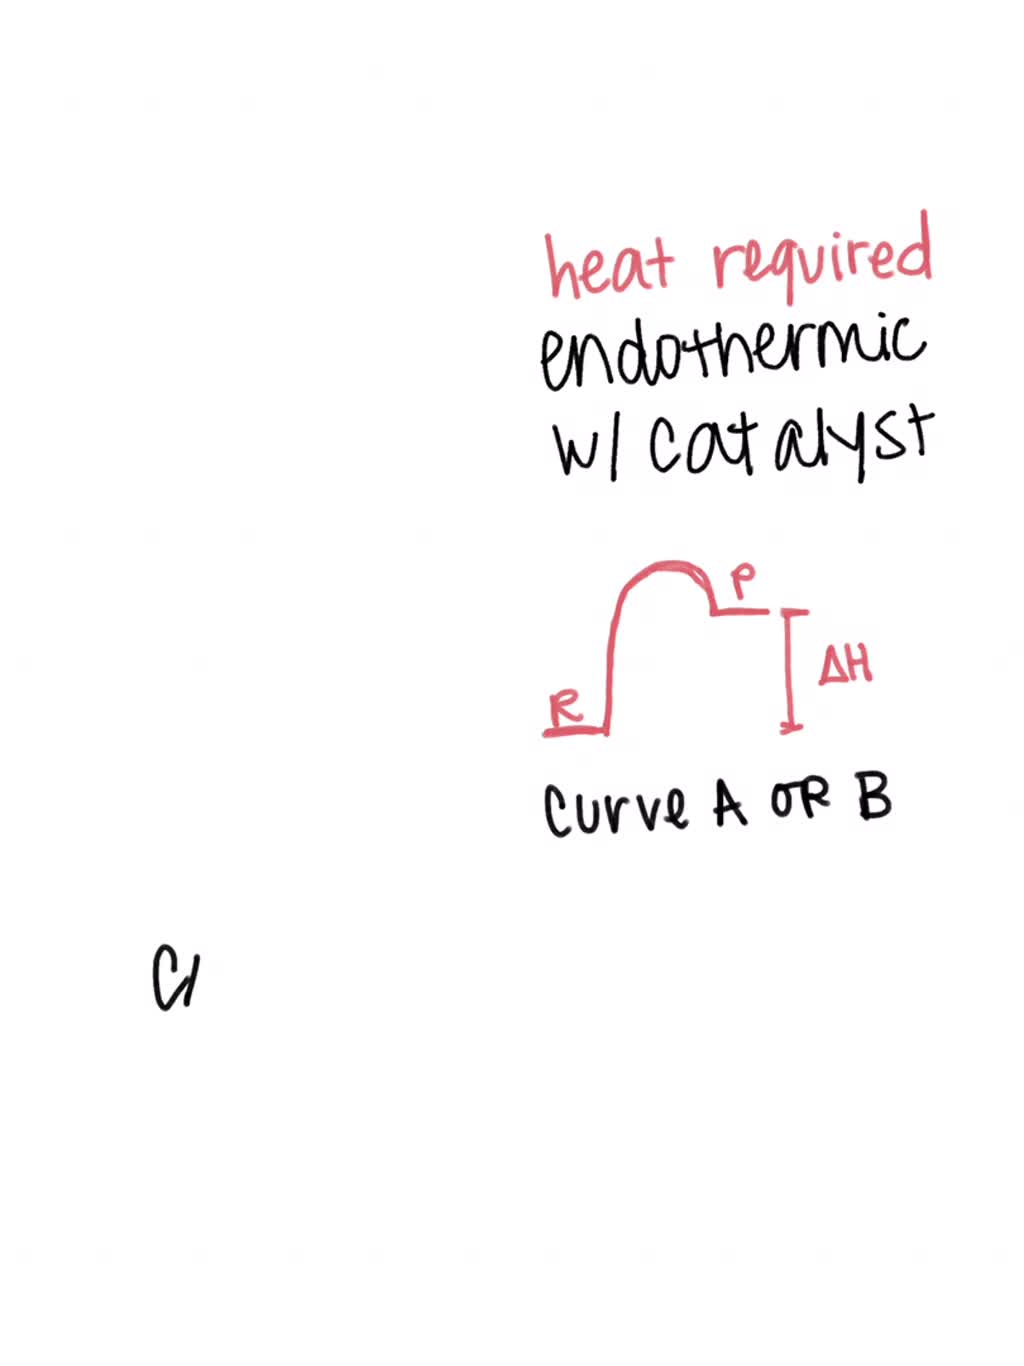 heat required
endothermic
w/ catalyst
P
ΔH
R
curve A OR B